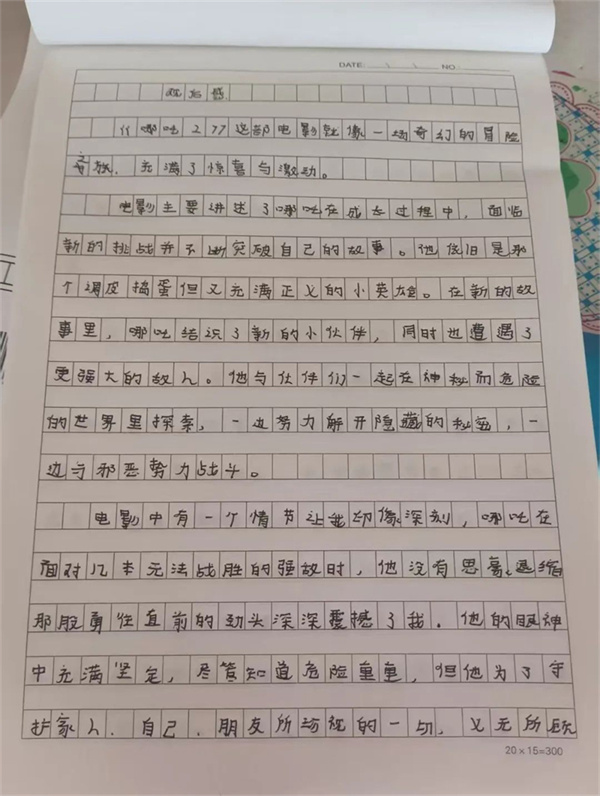 DATE: NO.
观后感
《哪吒2》这部电影就像一场奇幻的冒险
之旅，充满了惊喜与激动。
电影主要讲述了哪吒在成长过程中，面临
新的挑战并不断突破自己的故事。他依旧是那
个调皮捣蛋但又充满正义的小英雄。在新的故
事里，哪吒结识了新的小伙伴，同时也遭遇了
更强大的敌人。他与伙伴们一起在神秘而危险
的世界里探索，一边努力解开隐藏的秘密，一
边与邪恶势力战斗。
电影中有一个情节让我印像深刻，哪吒在
面对几本无法战胜的强敌时，他没有思退缩
那股勇往直前的劲头深深震撼了我。他的眼神
中充满坚定，尽管知道危险重重，但他为了守
护家人、自己、朋友所珍视的一切，义无所
20×15=300